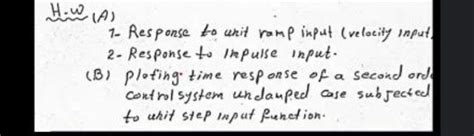 H.W (A)
1- Response to unit ramp input (velocity input
2- Response to Impulse input.
(B) ploting time response of a second orde
control system undauped case subjected
to unit step input function.